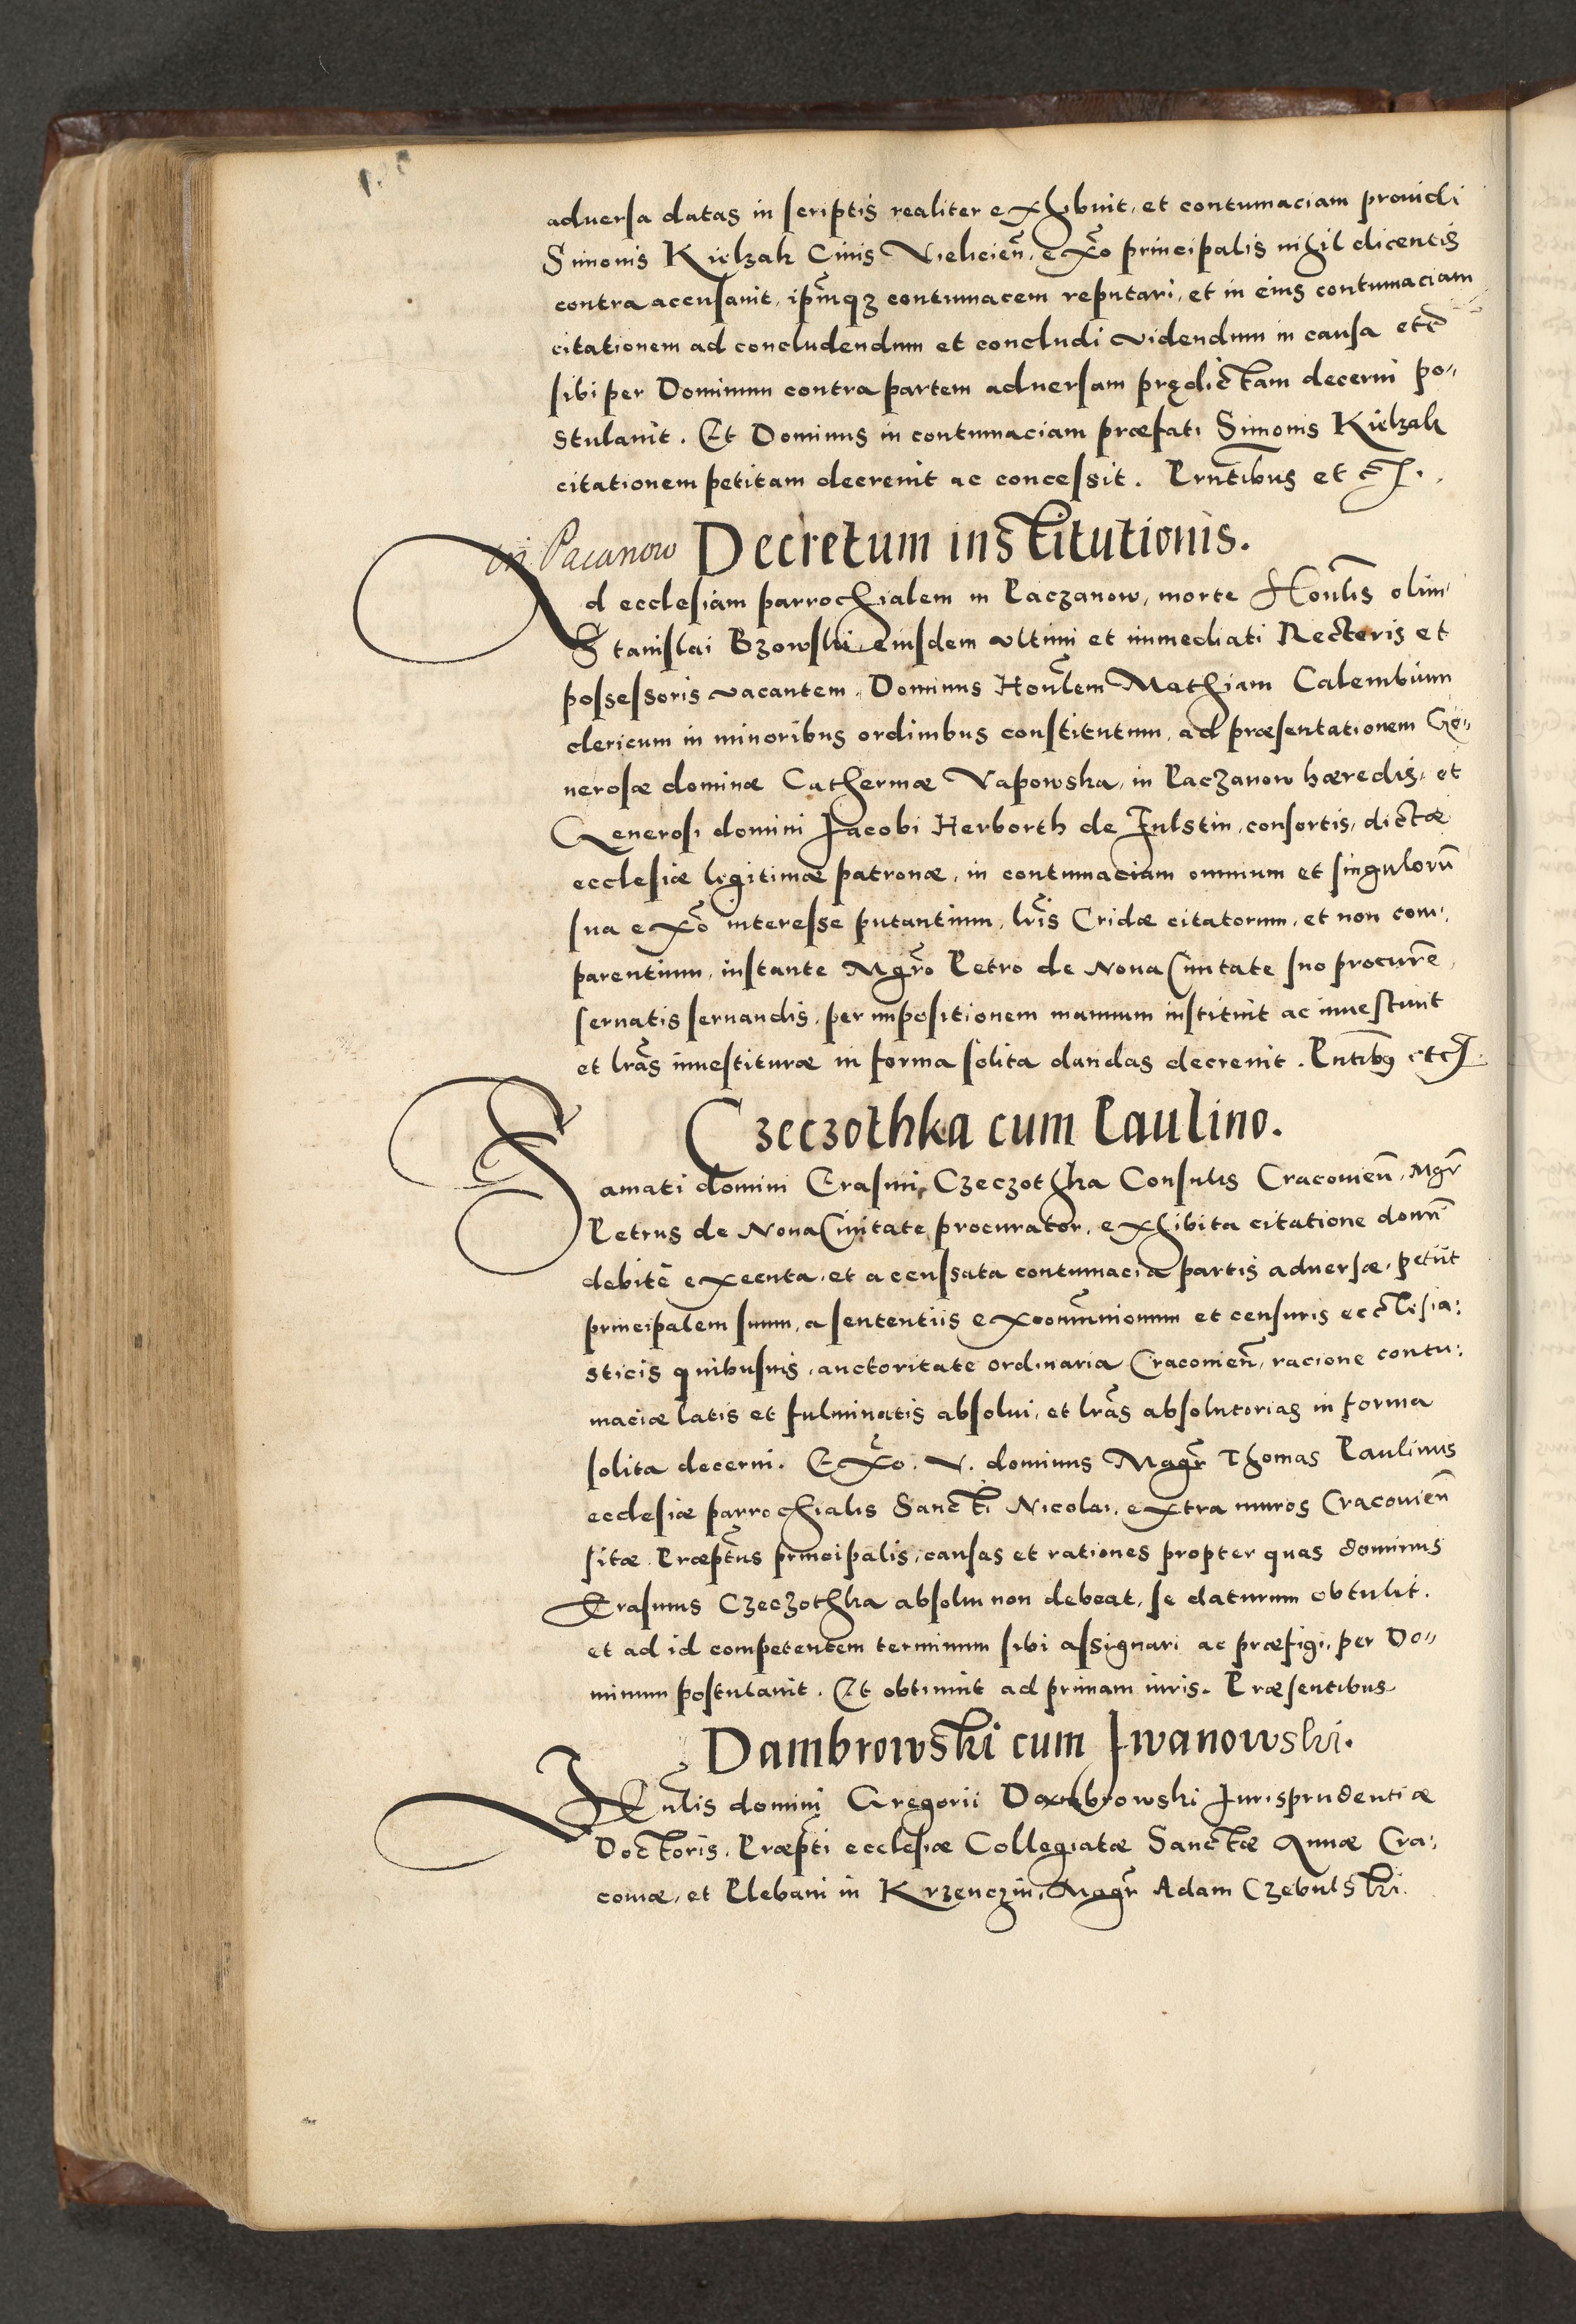 aduersa datas in scriptis realiter exhibuit, et contumaciam prouidi
Simonis Kielzak Ciuis Vielicien̄, ex̄o principalis nihil dicentis
contra accusauit, ip̄mqꝫ contumacem reputari, et in eius contumaciam
citationem ad concludendum et concludi videndum in causa etc̄
sibi per Dominum contra partem aduersam prędictam decerni po„
stulauit. Et Dominus in contumaciam præfati Simonis Kielzak
citationem petitam decreuit ac concessit. Prn̄tibus et c̄.
in Pacanow Decretum institutionis.
Ad ecclesiam parrochialem in Paczanow, morte Hon̄lis olim
Stanislai Bzowski eiusdem vltimi et immediati Rectoris et
possessoris vacantem, Dominus Hon̄lem Mathiam Calembium
clericum in minoribus ordinibus constitutum, ad præsentationem Ge„
nerosæ dominæ Catherinæ Vapowska, in Paczanow hæredis, et
Generosi domini Jacobi Herborth de Fulstin, consortis, dictæ
ecclesiæ legitimæ patronæ, in contumaciam omnium et singulorū
sua ex̄o interesse putantium, lr̄is Cridæ citatorum, et non com„
parentium, instante Mgr̄o Petro de Noua Ciuitate suo procur̄e,
seruatis seruandis, per impositionem manuum instituit ac inuestiuit
et lr̄as inuestituræ in forma solita dandas decreuit. Pn̄tibꝰ etc.
Czeczothka cum Paulino.
Famati domini Erasmi Czeczothka Consulis Cracouien̄, Mgr̄
Petrus de Noua Ciuitate procurator, exhibita citatione domū
debite executa, et accussata contumacia partis aduersæ, petiit
principalem suum, a sententiis excom̄unionum et censuris ecclesia:
sticis quibusuis, auctoritate ordinaria Cracouien̄, racione contu:
maciæ latis et fulminatis absolui, et lr̄as absolutorias in forma
solita decerni. Ex̄o. V. dominus Magr̄ Thomas Paulinus
ecclesiæ parrochialis Sancti Nicolai, extra muros Cracouien̄
sitæ Præpt̄us principalis, causas et rationes propter quas dominus
Erasmus Czeczothka absolui non debeat, se daturum obtulit.
et ad id competentem terminum sibi assignari ac præfigi, per Do„
minum postulauit. Et obtinuit ad primam iuris. Præsentibus
Dambrowski cum Iwanowski.
domini Gregorii Dambrowski Jurisprudentiæ
Doctoris, Præpt̄i ecclesiæ Collegiatæ Sanctæ Annæ Cra:
couiæ, et Plebani in Krzenczin, Magr̄ Adam Czebulski